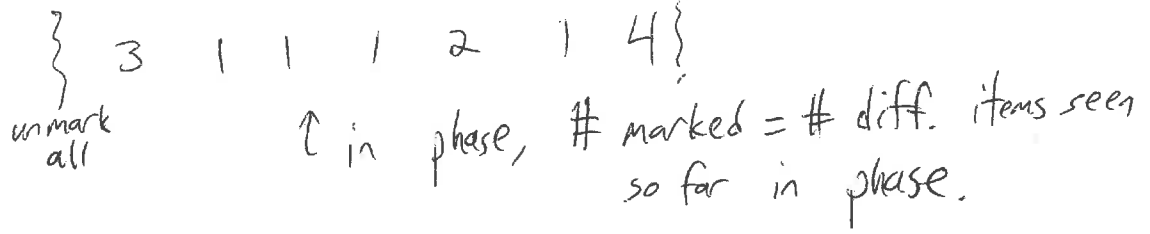 } 3 1 1 1 2 1 4 }
unmark
all
↑ in phase, # marked = # diff. items seen
so far in phase.